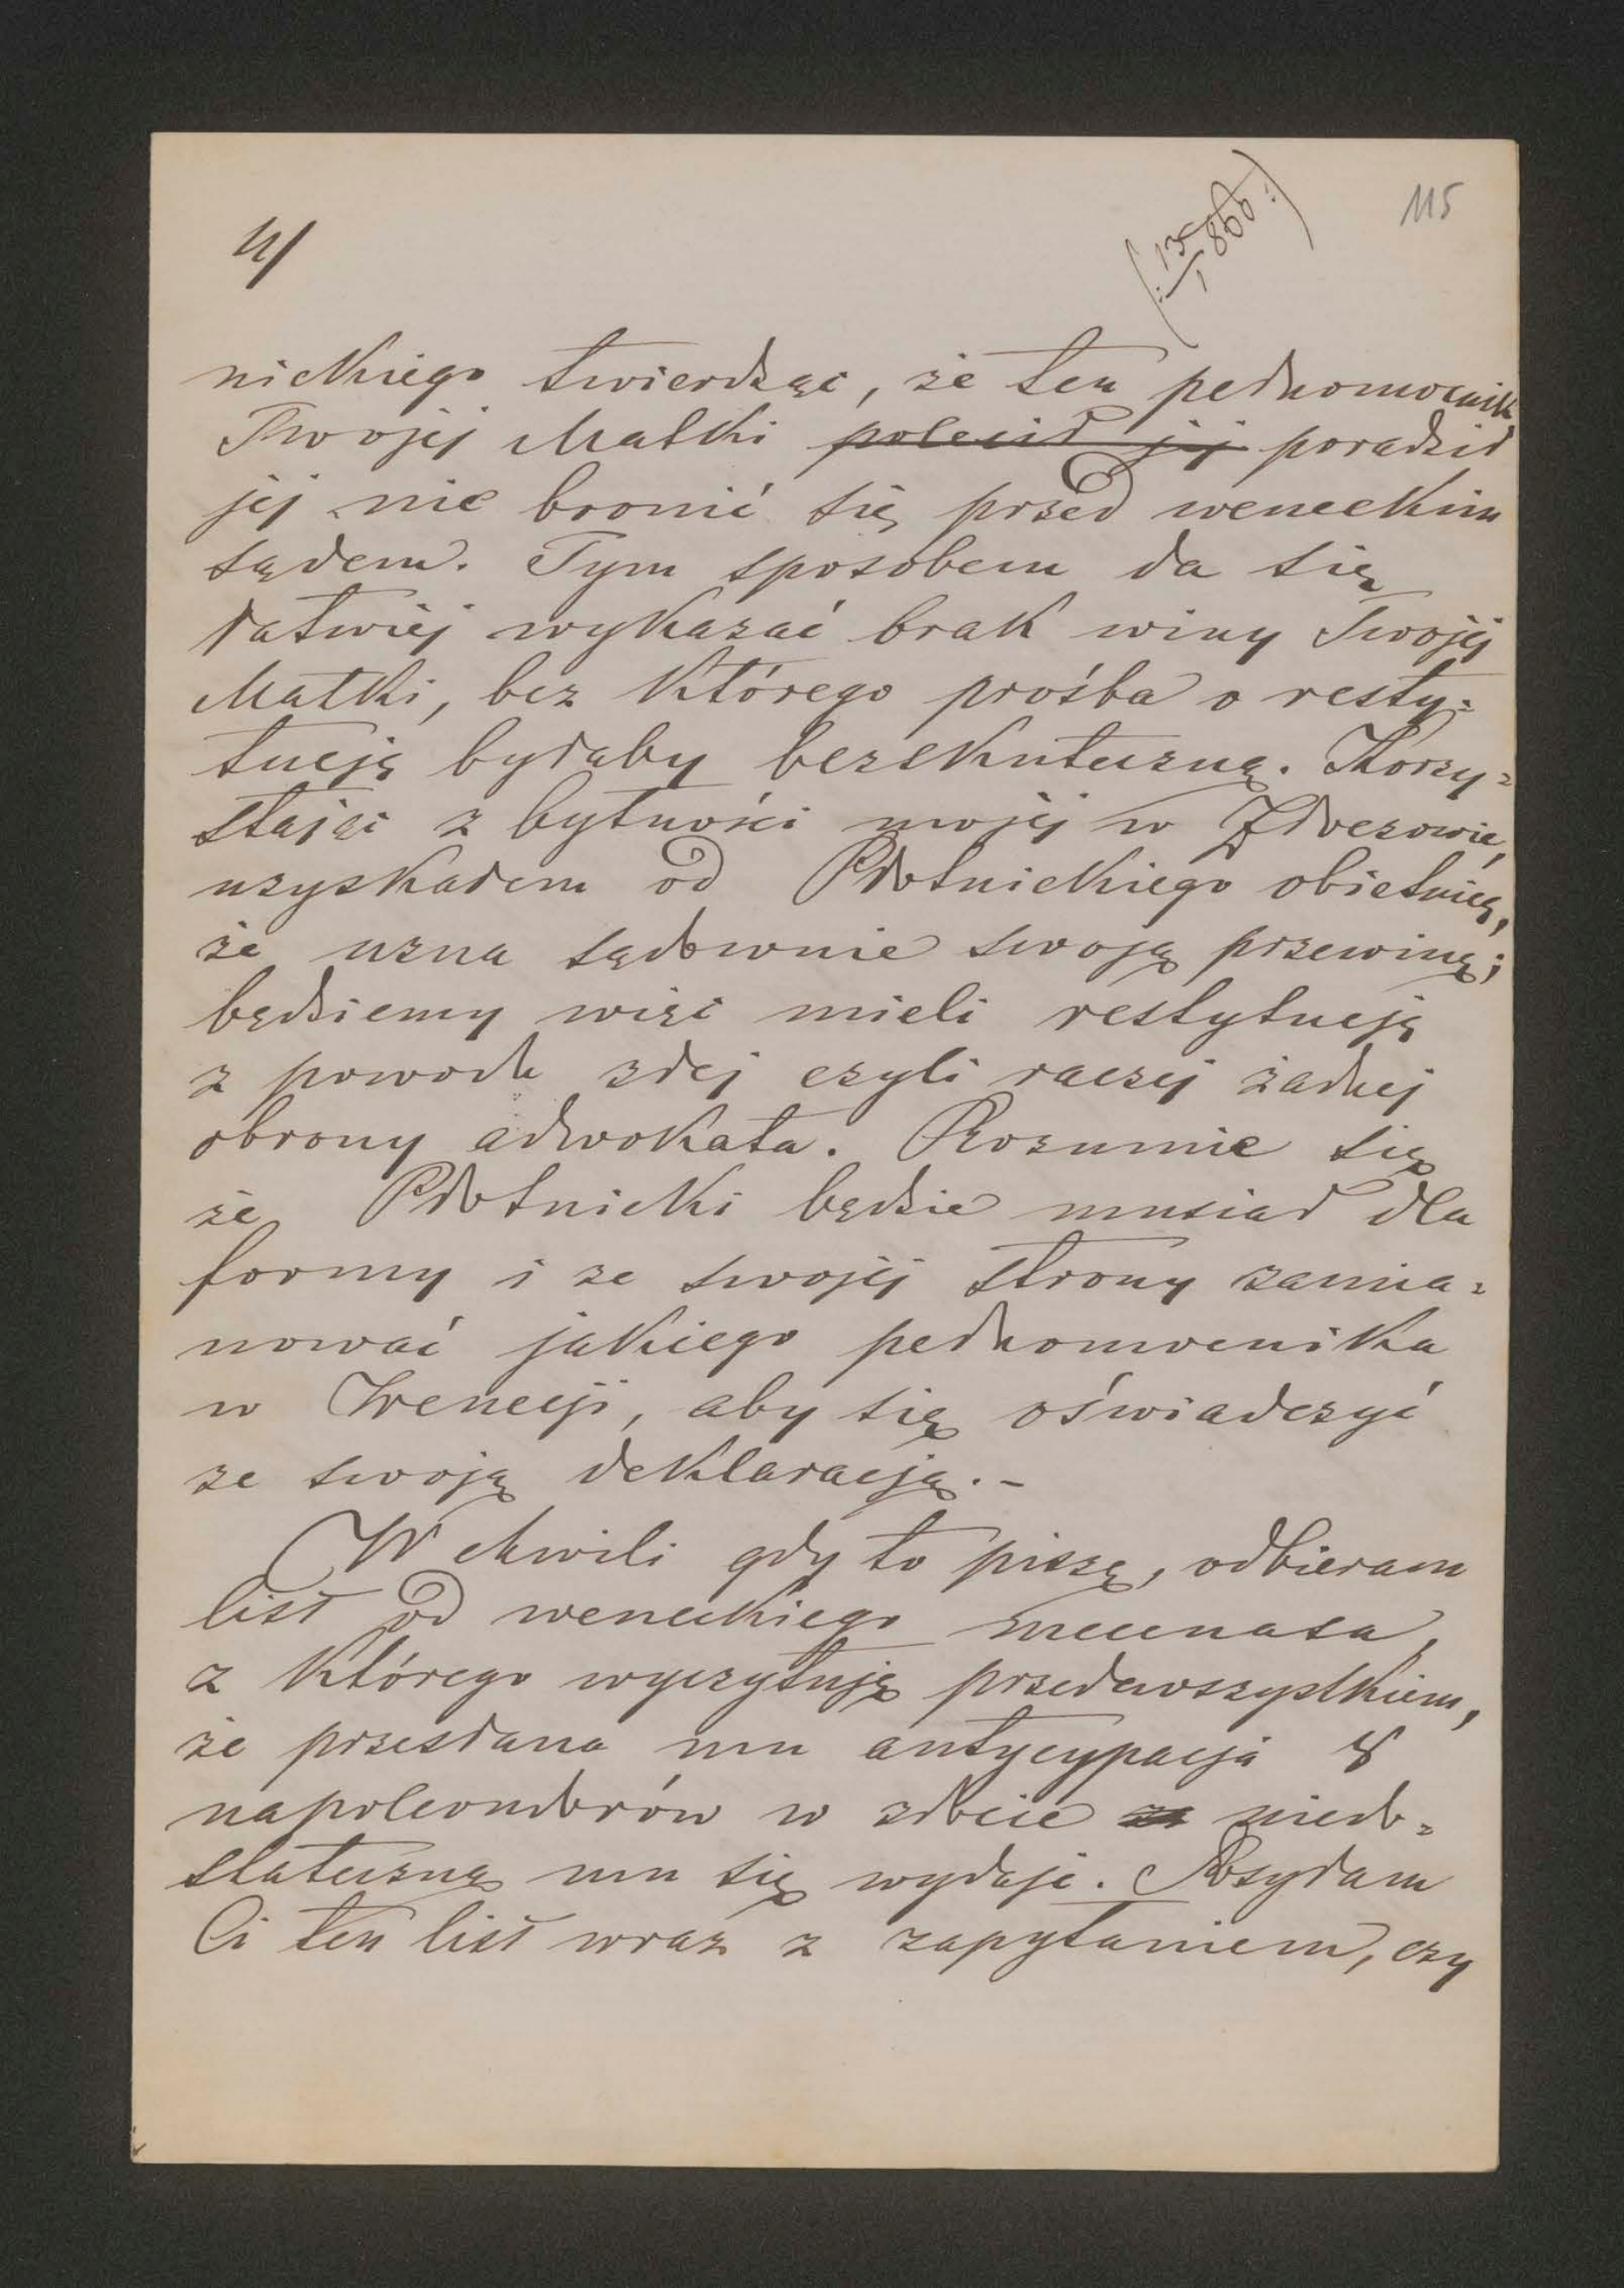 115
4/
(: 13/I 866 :)
nickiego twierdząc, że ten pełnomocnik
Twojej Matki polecił jej poradził
jej nie bronić się przed weneckim
sądem. Tym sposobem da się
łatwiej wykazać brak winy Twojej
Matki, bez którego prośba o resty=
tucją byłaby bezskuteczną. Korzy=
stając z bytności mojej w Złoczowie,
uzyskałem od Płotnickiego obietnicę,
że uzna sądownie swoją przewinę;
będziemy więc mieli restytucją
z powodu złej czyli raczej żadnej
obrony adwokata. Rozumie się
że Płotnicki będzie musiał dla
formy i ze swojej strony zamia=
nować jakiego pełnomocnika
w Wenecji, aby się oświadczyć
ze swoją deklaracją. -
W chwili gdy to piszę, odbieram
list od weneckiego mecenasa,
z którego wyczytuję przedewszystkiem,
że przesłana mu antycypacja 8
napoleondorów w złocie niedo=
stateczną mu się wydaje. Posyłam
Ci ten list wraz z zapytaniem, czy